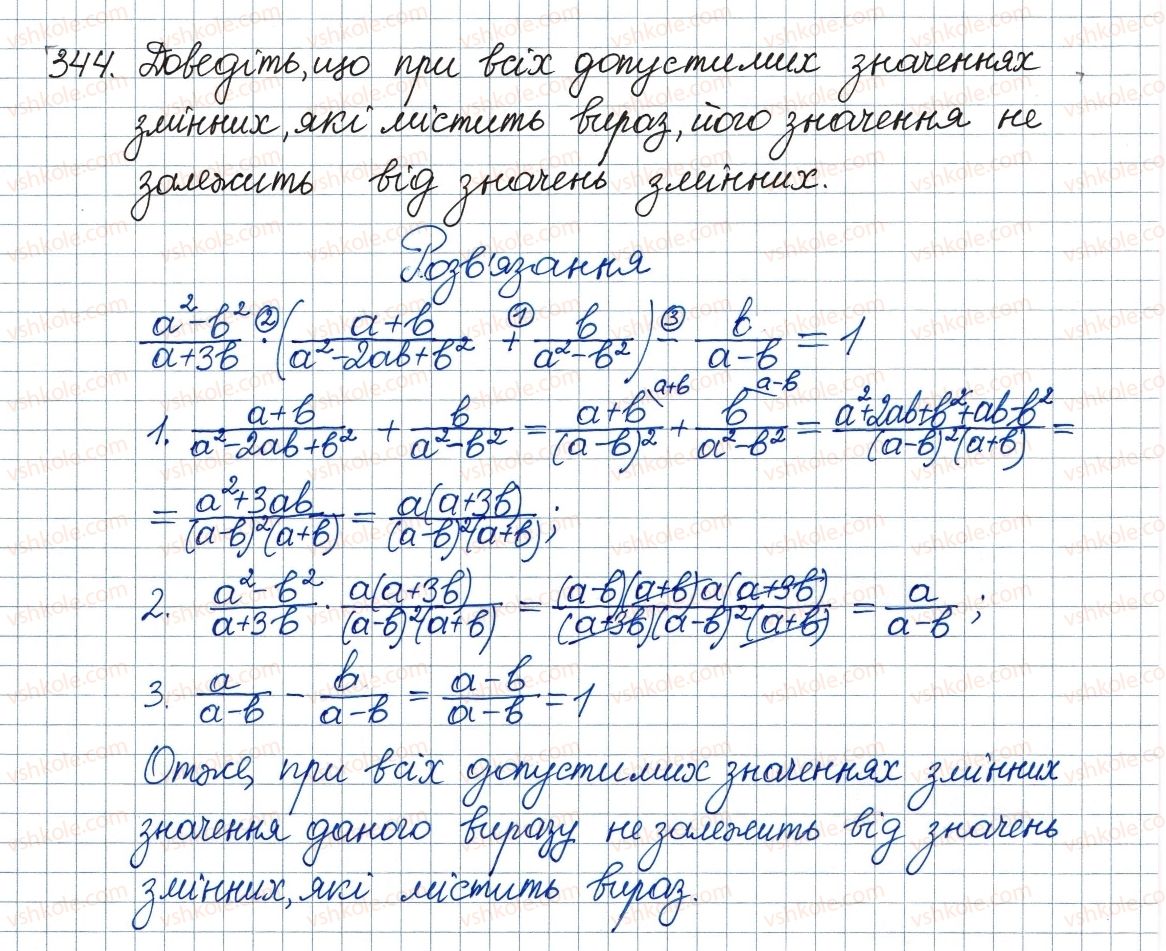 344. Доведіть, що при всіх допустимих значеннях
змінних, які містить вираз, його значення не
залежить від значень змінних.
Розв'язання
(a²-b²)/(a+3b) ② · ((a+b)/(a²-2ab+b²) ① + b/(a²-b²)) ③ - b/(a-b) = 1
1. (a+b)/(a²-2ab+b²) + b/(a²-b²) = (a+b)/(a-b)² \a+b + b/(a²-b²) \a-b = (a²+2ab+b²+ab-b²)/((a-b)²(a+b)) =
= (a²+3ab)/((a-b)²(a+b)) = a(a+3b)/((a-b)²(a+b));
2. (a²-b²)/(a+3b) · a(a+3b)/((a-b)²(a+b)) = (a-b)(a+b)a(a+3b)/((a+3b)(a-b)²(a+b)) = a/(a-b);
3. a/(a-b) - b/(a-b) = (a-b)/(a-b) = 1
Отже, при всіх допустимих значеннях змінних
значення даного виразу не залежить від значень
змінних, які містить вираз.
vshkole.com